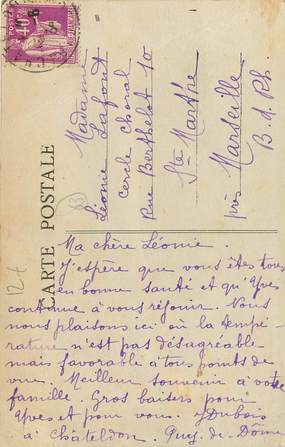 CARTE POSTALE
POSTES
40c
Madame
Léonie Lafont
Cercle Choral
Rue Berthelot 10
Ste Marthe
près Marseille
B. d. Rh.
124
Ma chère Léonie.
J'espère que vous êtes tous
en bonne santé et qu'Yves
continue à vous réjouir. Nous
nous plaisons ici où la tempé-
rature n'est pas désagréable
mais favorable à tous points de
vue. Meilleur souvenir à votre
famille. Gros baisers pour
Yves et pour vous. J Dubois
à Châteldon. Puy. de Dôme